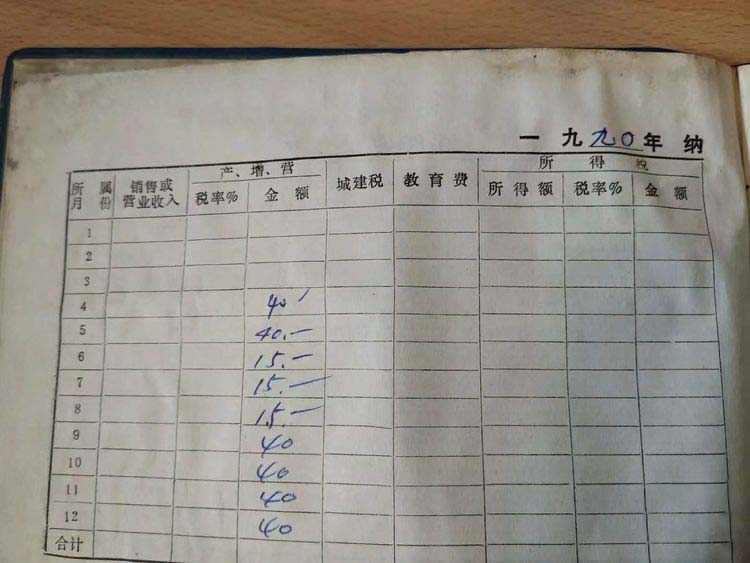 一九九〇年 纳
所属月份 销售或营业收入 产、增、营 城建税 教育费 所得税
税率% 金额 所得额 税率% 金额
1
2
3
4 40
5 40.—
6 15.—
7 15.—
8 15.—
9 40
10 40
11 40
12 40
合计